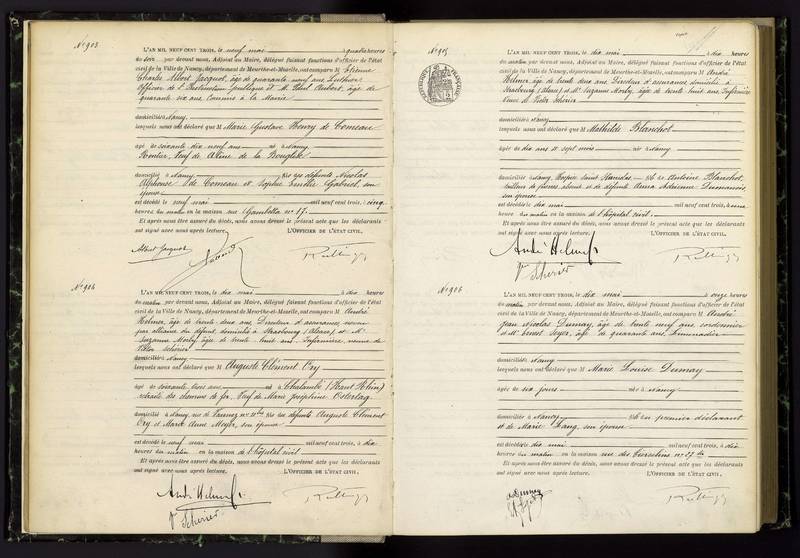 N° 903
L'AN MIL NEUF CENT TROIS, le neuf mai à quatre heures
du soir par devant nous, Adjoint au Maire, délégué faisant fonctions d'officier de l'état
civil de la Ville de Nancy, département de Meurthe-et-Moselle, ont comparu M Etienne
Charles Albert Jacquot, âgé de quarante neuf ans, Luthier
Officier de l'Instruction publique et M. Paul Aubert, âgé de
quarante six ans, Commis à la Mairie
domiciliés à Nancy
lesquels nous ont déclaré que M Marie Gustave Henry de Comeau
âgé de soixante dix neuf ans né à Nancy
Rentier, Veuf de de la
domicilié à Nancy fils des défunts Nicolas
Alphonse de Comeau et Sophie Gabriel, son
épouse
est décédé le neuf mai mil neuf cent trois, à cinq
heures du matin en la maison rue Gambetta n° 17
Et après nous être assuré du décès, nous avons dressé le présent acte que les déclarants
ont signé avec nous après lecture. L'OFFICIER DE L'ÉTAT CIVIL,
Albert Jacquot
N° 904
L'AN MIL NEUF CENT TROIS, le dix mai à dix heures
du matin par devant nous, Adjoint au Maire, délégué faisant fonctions d'officier de l'état
civil de la Ville de Nancy, département de Meurthe-et-Moselle, ont comparu M André
Helmer, âgé de trente deux ans, Directeur d'assurances,
par alliance du défunt, domicilié à Strasbourg (Alsace), et M
Suzanne Morly, âgée de trente huit ans, Infirmière, veuve de
Victor Scherier
domiciliés à Nancy
lesquels nous ont déclaré que M Auguste Clément Ory
âgé de soixante trois ans né à Chalampé (Haut Rhin)
retraité des chemins de fer, Veuf de Marie Joséphine Ostertag
domicilié à Nancy, rue de fils des défunts Auguste Clément
Ory et Marie Anne Meyer, son épouse
est décédé le neuf mai mil neuf cent trois, à dix
heures du matin en la maison de l'hôpital civil
Et après nous être assuré du décès, nous avons dressé le présent acte que les déclarants
ont signé avec nous après lecture. L'OFFICIER DE L'ÉTAT CIVIL,
André Helmer
Scherier
N° 905
L'AN MIL NEUF CENT TROIS, le dix mai à dix heures
du matin par devant nous, Adjoint au Maire, délégué faisant fonctions d'officier de l'état
civil de la Ville de Nancy, département de Meurthe-et-Moselle, ont comparu M André
Helmer, âgé de trente deux ans, Directeur d'assurances, domicilié à
Strasbourg (Alsace), et M Suzanne Morly, âgée de trente huit ans, Infirmière
Veuve de Victor Scherier
domiciliés à Nancy
lesquels nous ont déclaré que M Mathilde Blanchot
âgée de dix ans et sept mois née à Nancy
domiciliée à Nancy, Hospice Saint Stanislas fille de Antoine Blanchot,
tailleur de pierres, absent et de défunte Anna Adrienne Dumanois
son épouse
est décédée le dix mai mil neuf cent trois, à une
heure du matin en la maison de l'hôpital civil
Et après nous être assuré du décès, nous avons dressé le présent acte que les déclarants
ont signé avec nous après lecture. L'OFFICIER DE L'ÉTAT CIVIL,
André Helmer
Scherier
N° 906
L'AN MIL NEUF CENT TROIS, le dix mai à onze heures
du matin par devant nous, Adjoint au Maire, délégué faisant fonctions d'officier de l'état
civil de la Ville de Nancy, département de Meurthe-et-Moselle, ont comparu M André
Jean Nicolas Dumay, âgé de trente neuf ans, cordonnier
et M Ernest Soyer, âgé de quarante ans, Limonadier
domiciliés à Nancy
lesquels nous ont déclaré que M Marie Louise Dumay
âgée de six jours née à Nancy
domiciliée à Nancy fille du premier déclarant
et de Marie Lang, son épouse
est décédée le dix mai mil neuf cent trois, à dix
heures du matin en la maison rue des n° 27
Et après nous être assuré du décès, nous avons dressé le présent acte que les déclarants
ont signé avec nous après lecture. L'OFFICIER DE L'ÉTAT CIVIL,
Dumay